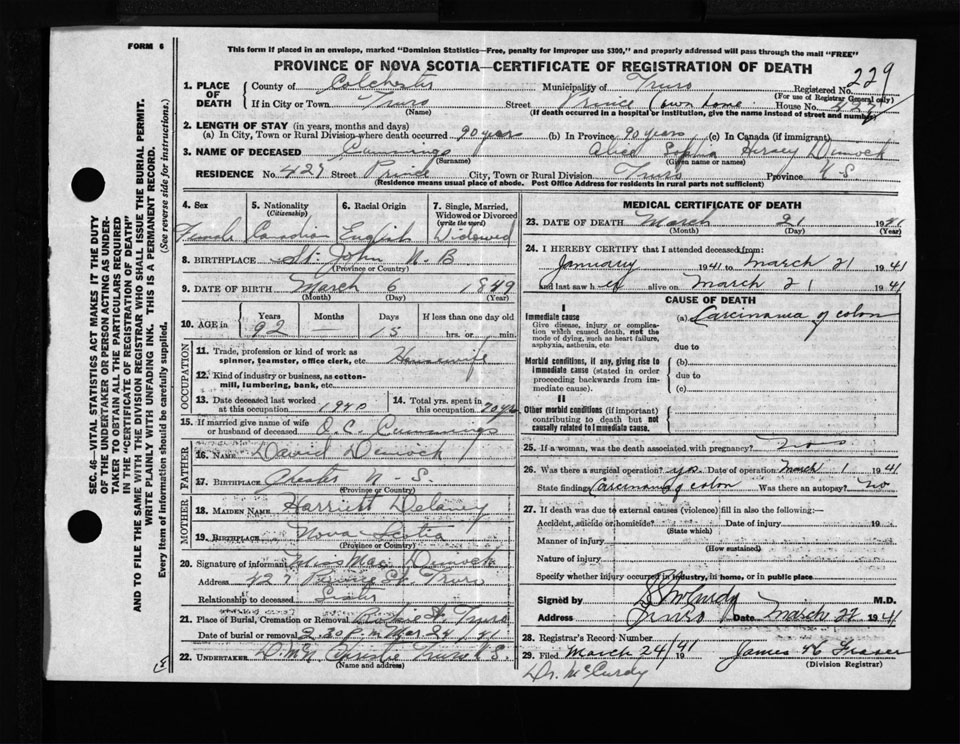 FORM 6
This form if placed in an envelope, marked "Dominion Statistics—Free, penalty for improper use $300," and properly addressed will pass through the mail "FREE"
PROVINCE OF NOVA SCOTIA—CERTIFICATE OF REGISTRATION OF DEATH
229
SEC. 46—VITAL STATISTICS ACT MAKES IT THE DUTY
OF THE UNDERTAKER OR PERSON ACTING AS UNDER-
TAKER TO OBTAIN ALL THE PARTICULARS REQUIRED
IN THE "CERTIFICATE OF REGISTRATION OF DEATH"
AND TO FILE THE SAME WITH THE DIVISION REGISTRAR WHO SHALL ISSUE THE BURIAL PERMIT.
WRITE PLAINLY WITH UNFADING INK. THIS IS A PERMANENT RECORD.
Every item of information should be carefully supplied. (See reverse side for instructions.)
1. PLACE OF DEATH County of Colchester Municipality of Truro Registered No.
(For use of Registrar General only)
If in City or Town Truro Street Prince (own home House No. 427
(Name) (If death occurred in a hospital or institution, give the name instead of street and number)
2. LENGTH OF STAY (in years, months and days)
(a) In City, Town or Rural Division where death occurred 90 years (b) In Province 90 years (c) In Canada (if immigrant)
3. NAME OF DECEASED Cummings Alice Sophia Hersey Dimock
(Surname) (Given name or names)
RESIDENCE No. 427 Street Prince City, Town or Rural Division Truro Province N.S.
(Residence means usual place of abode. Post Office Address for residents in rural parts not sufficient)
4. Sex 5. Nationality (Citizenship) 6. Racial Origin 7. Single, Married, Widowed or Divorced (write the word)
Female Canadian English Widowed
8. BIRTHPLACE St. John N.B
(Province or Country)
9. DATE OF BIRTH March 6 1849
(Month) (Day) (Year)
10. AGE in Years Months Days If less than one day old
92 — 15 hrs. or min.
OCCUPATION
11. Trade, profession or kind of work as
spinner, teamster, office clerk, etc. Housewife
12. Kind of industry or business, as cotton-
mill, lumbering, bank, etc.
13. Date deceased last worked
at this occupation 1940
14. Total yrs. spent in
this occupation
15. If married give name of wife
or husband of deceased O.C. Cummings
FATHER
16. NAME David Dimock
17. BIRTHPLACE Chester N-S.
(Province or Country)
MOTHER
18. MAIDEN NAME Harriett Delaney
19. BIRTHPLACE Nova Scotia
(Province or Country)
20. Signature of informant Miss Mae Dimock
Address 427 Prince St. Truro
Relationship to deceased Sister
21. Place of Burial, Cremation or Removal Robie St Truro
Date of burial or removal 2.30 P.m Mar 24/41
22. UNDERTAKER D. McN Christie Truro N.S.
(Name and address)
MEDICAL CERTIFICATE OF DEATH
23. DATE OF DEATH March 21 1941
(Month) (Day) (Year)
24. I HEREBY CERTIFY that I attended deceased from:
January 1941 to March 21 1941
and last saw her alive on March 21 1941
CAUSE OF DEATH
I
Immediate cause (a) Carcinoma of colon
Give disease, injury or complica-
tion which caused death, not the
mode of dying, such as heart failure,
asphyxia, asthenia, etc.
due to
Morbid conditions, if any, giving rise to
immediate cause (stated in order
proceeding backwards from im-
mediate cause).
(b)
due to
(c)
II
Other morbid conditions (if important)
contributing to death but not
causally related to immediate cause.
25. If a woman, was the death associated with pregnancy? No
26. Was there a surgical operation? yes Date of operation March 1 1941
State findings Carcinoma of colon Was there an autopsy? No
27. If death was due to external causes (violence) fill in also the following:—
Accident, suicide or homicide? Date of injury 19
(State which)
Manner of injury
(How sustained)
Nature of injury
Specify whether injury occurred in industry, in home, or in public place
Signed by McCurdy M.D.
Address Truro Date March 22 1941
28. Registrar's Record Number
29. Filed March 24/41 19 James W Fraser
(Division Registrar)
Dr. McCurdy